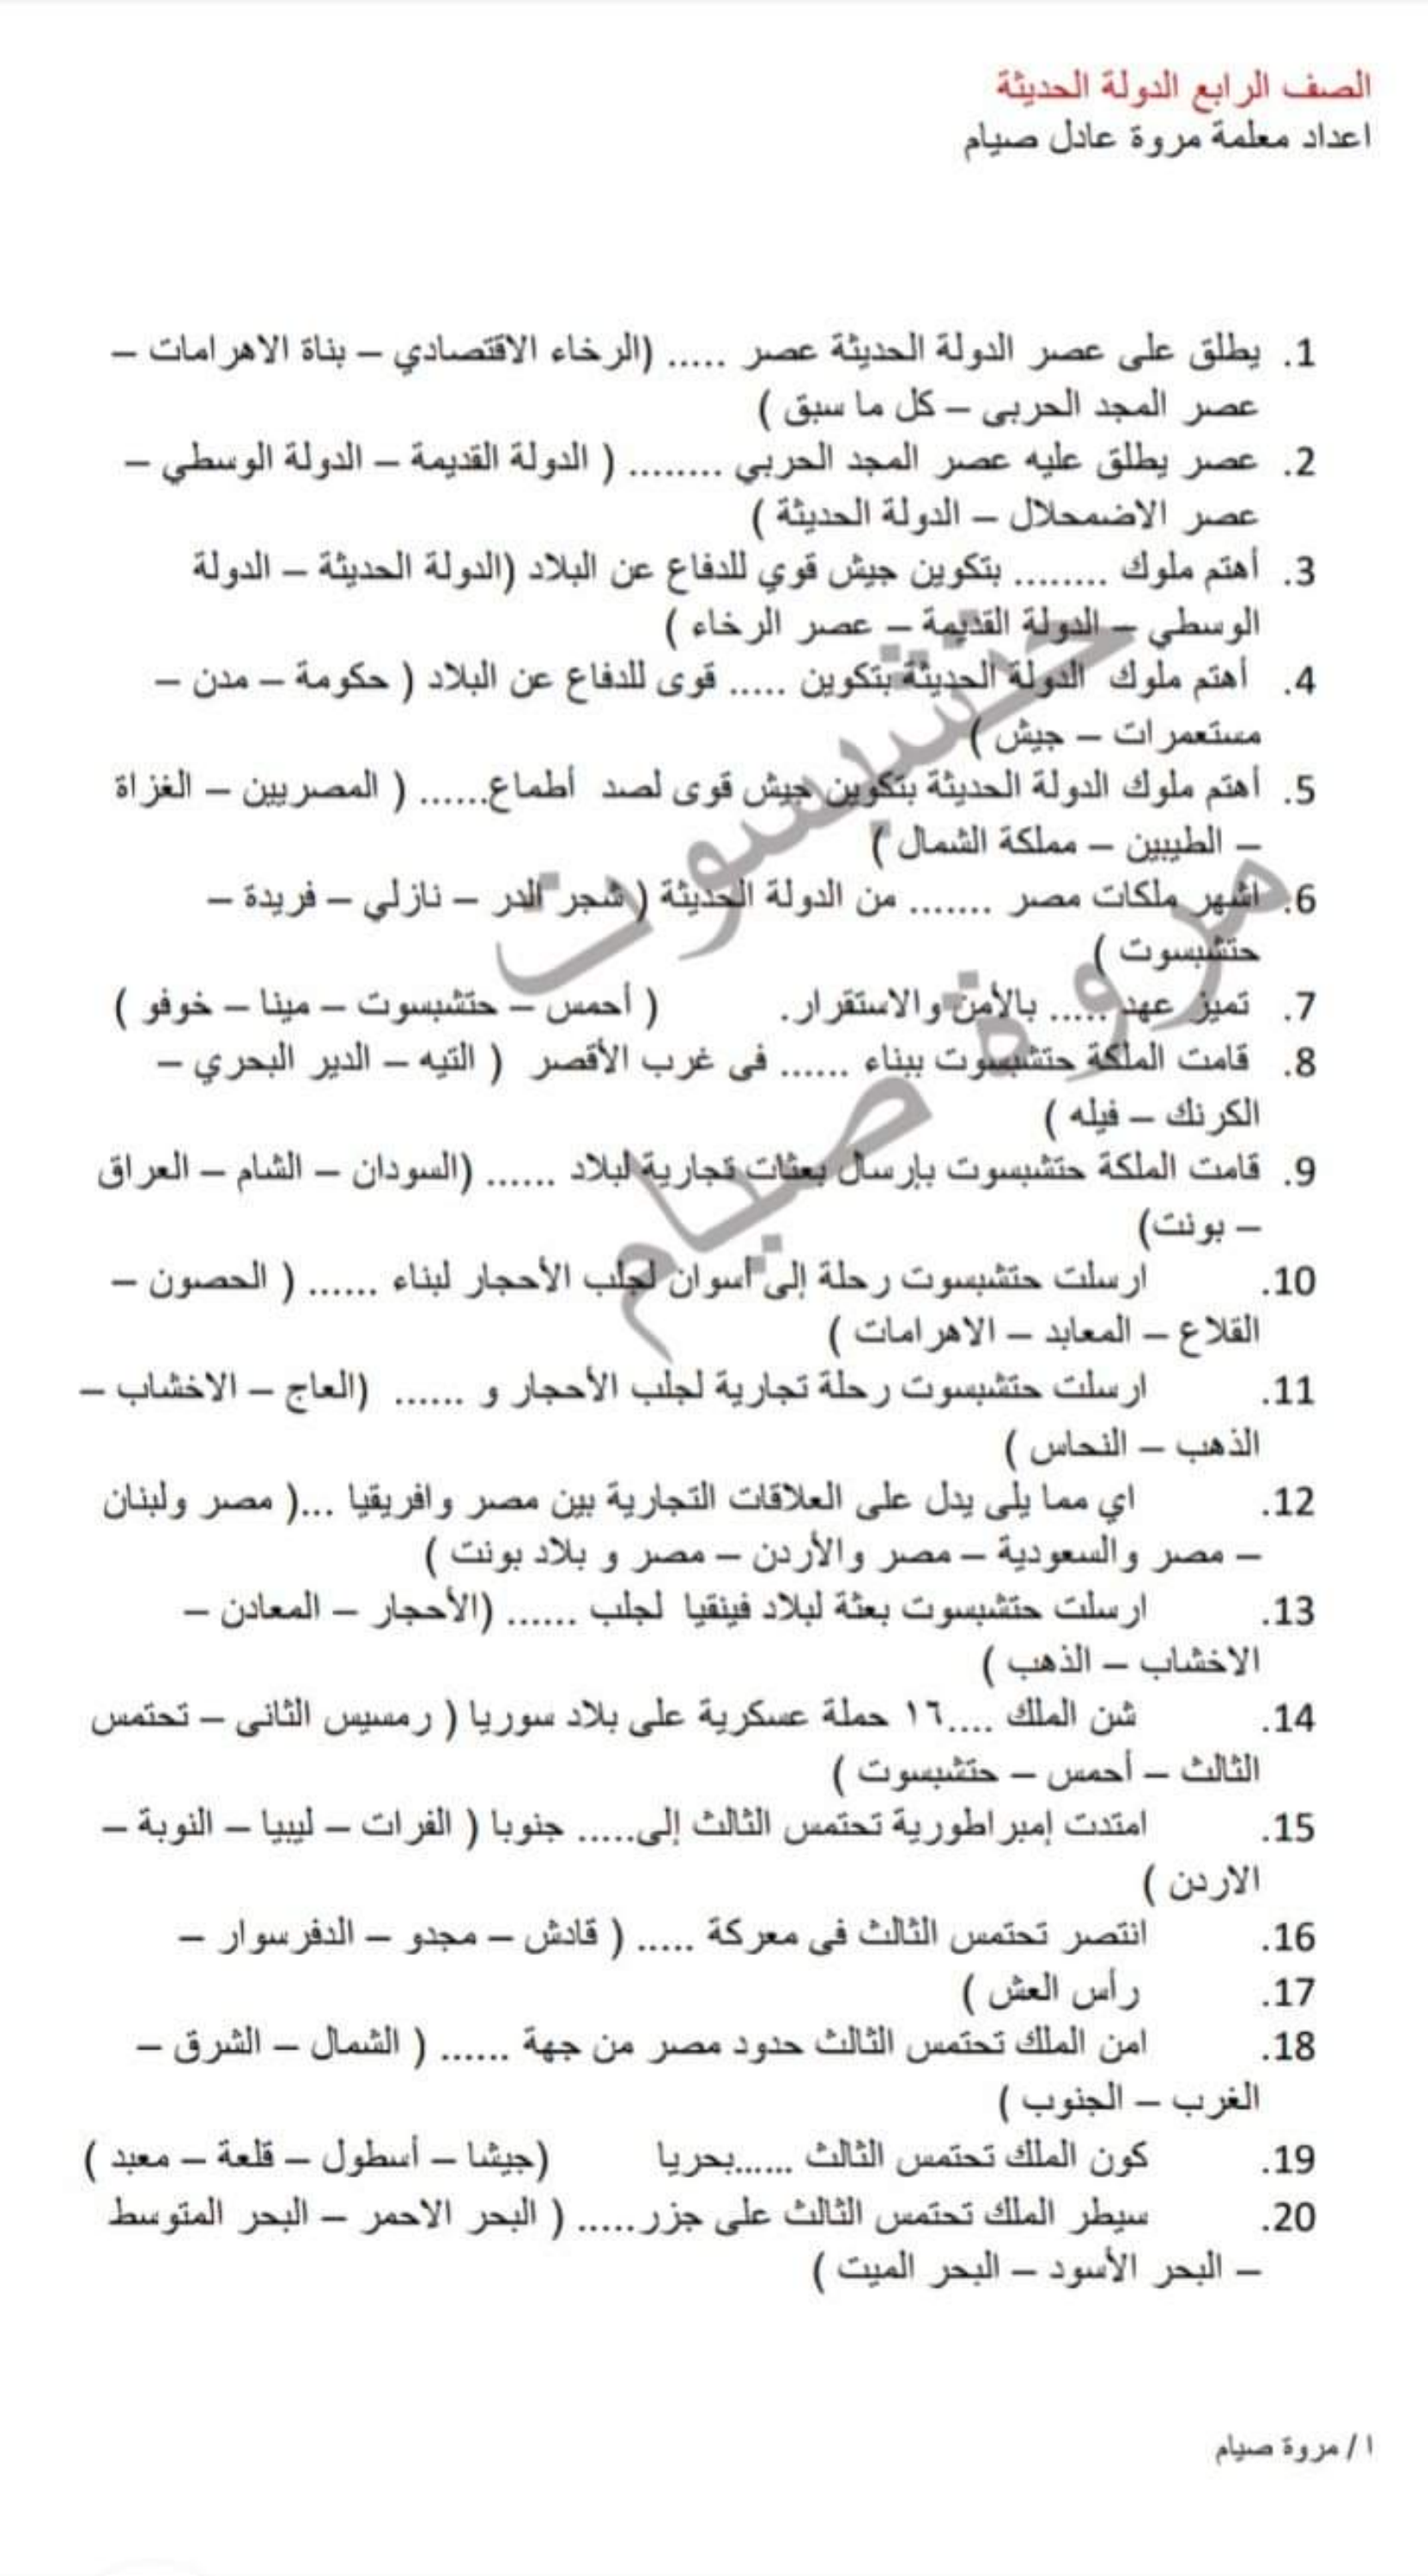 الصف الرابع الدولة الحديثة
اعداد معلمة مروة عادل صيام
1. يطلق على عصر الدولة الحديثة عصر ..... (الرخاء الاقتصادي – بناة الاهرامات –
عصر المجد الحربى – كل ما سبق )
2. عصر يطلق عليه عصر المجد الحربي ........ ( الدولة القديمة – الدولة الوسطي –
عصر الاضمحلال – الدولة الحديثة )
3. أهتم ملوك ........ بتكوين جيش قوي للدفاع عن البلاد (الدولة الحديثة – الدولة
الوسطي – الدولة القديمة – عصر الرخاء )
4. أهتم ملوك الدولة الحديثة بتكوين ..... قوى للدفاع عن البلاد ( حكومة – مدن –
مستعمرات – جيش )
5. أهتم ملوك الدولة الحديثة بتكوين جيش قوى لصد أطماع...... ( المصريين – الغزاة
– الطيبين – مملكة الشمال )
6. اشهر ملكات مصر ....... من الدولة الحديثة ( شجر الدر – نازلي – فريدة –
حتشبسوت )
7. تميز عهد ..... بالأمن والاستقرار. ( أحمس – حتشبسوت – مينا – خوفو )
8. قامت الملكة حتشبسوت ببناء ...... فى غرب الأقصر ( التيه – الدير البحري –
الكرنك – فيله )
9. قامت الملكة حتشبسوت بإرسال بعثات تجارية لبلاد ...... (السودان – الشام – العراق
– بونت)
10. ارسلت حتشبسوت رحلة إلى أسوان لجلب الأحجار لبناء ...... ( الحصون –
القلاع – المعابد – الاهرامات )
11. ارسلت حتشبسوت رحلة تجارية لجلب الأحجار و ...... (العاج – الاخشاب –
الذهب – النحاس )
12. اي مما يلى يدل على العلاقات التجارية بين مصر وافريقيا ...( مصر ولبنان
– مصر والسعودية – مصر والأردن – مصر و بلاد بونت )
13. ارسلت حتشبسوت بعثة لبلاد فينقيا لجلب ...... (الأحجار – المعادن –
الاخشاب – الذهب )
14. شن الملك ....١٦ حملة عسكرية على بلاد سوريا ( رمسيس الثانى – تحتمس
الثالث – أحمس – حتشبسوت )
15. امتدت إمبراطورية تحتمس الثالث إلى..... جنوبا ( الفرات – ليبيا – النوبة –
الاردن )
16. انتصر تحتمس الثالث فى معركة ..... ( قادش – مجدو – الدفرسوار –
17. رأس العش )
18. امن الملك تحتمس الثالث حدود مصر من جهة ...... ( الشمال – الشرق –
الغرب – الجنوب )
19. كون الملك تحتمس الثالث ......بحريا (جيشا – أسطول – قلعة – معبد )
20. سيطر الملك تحتمس الثالث على جزر..... ( البحر الاحمر – البحر المتوسط
– البحر الأسود – البحر الميت )
حتشبسوت
مروة صيام
ا / مروة صيام